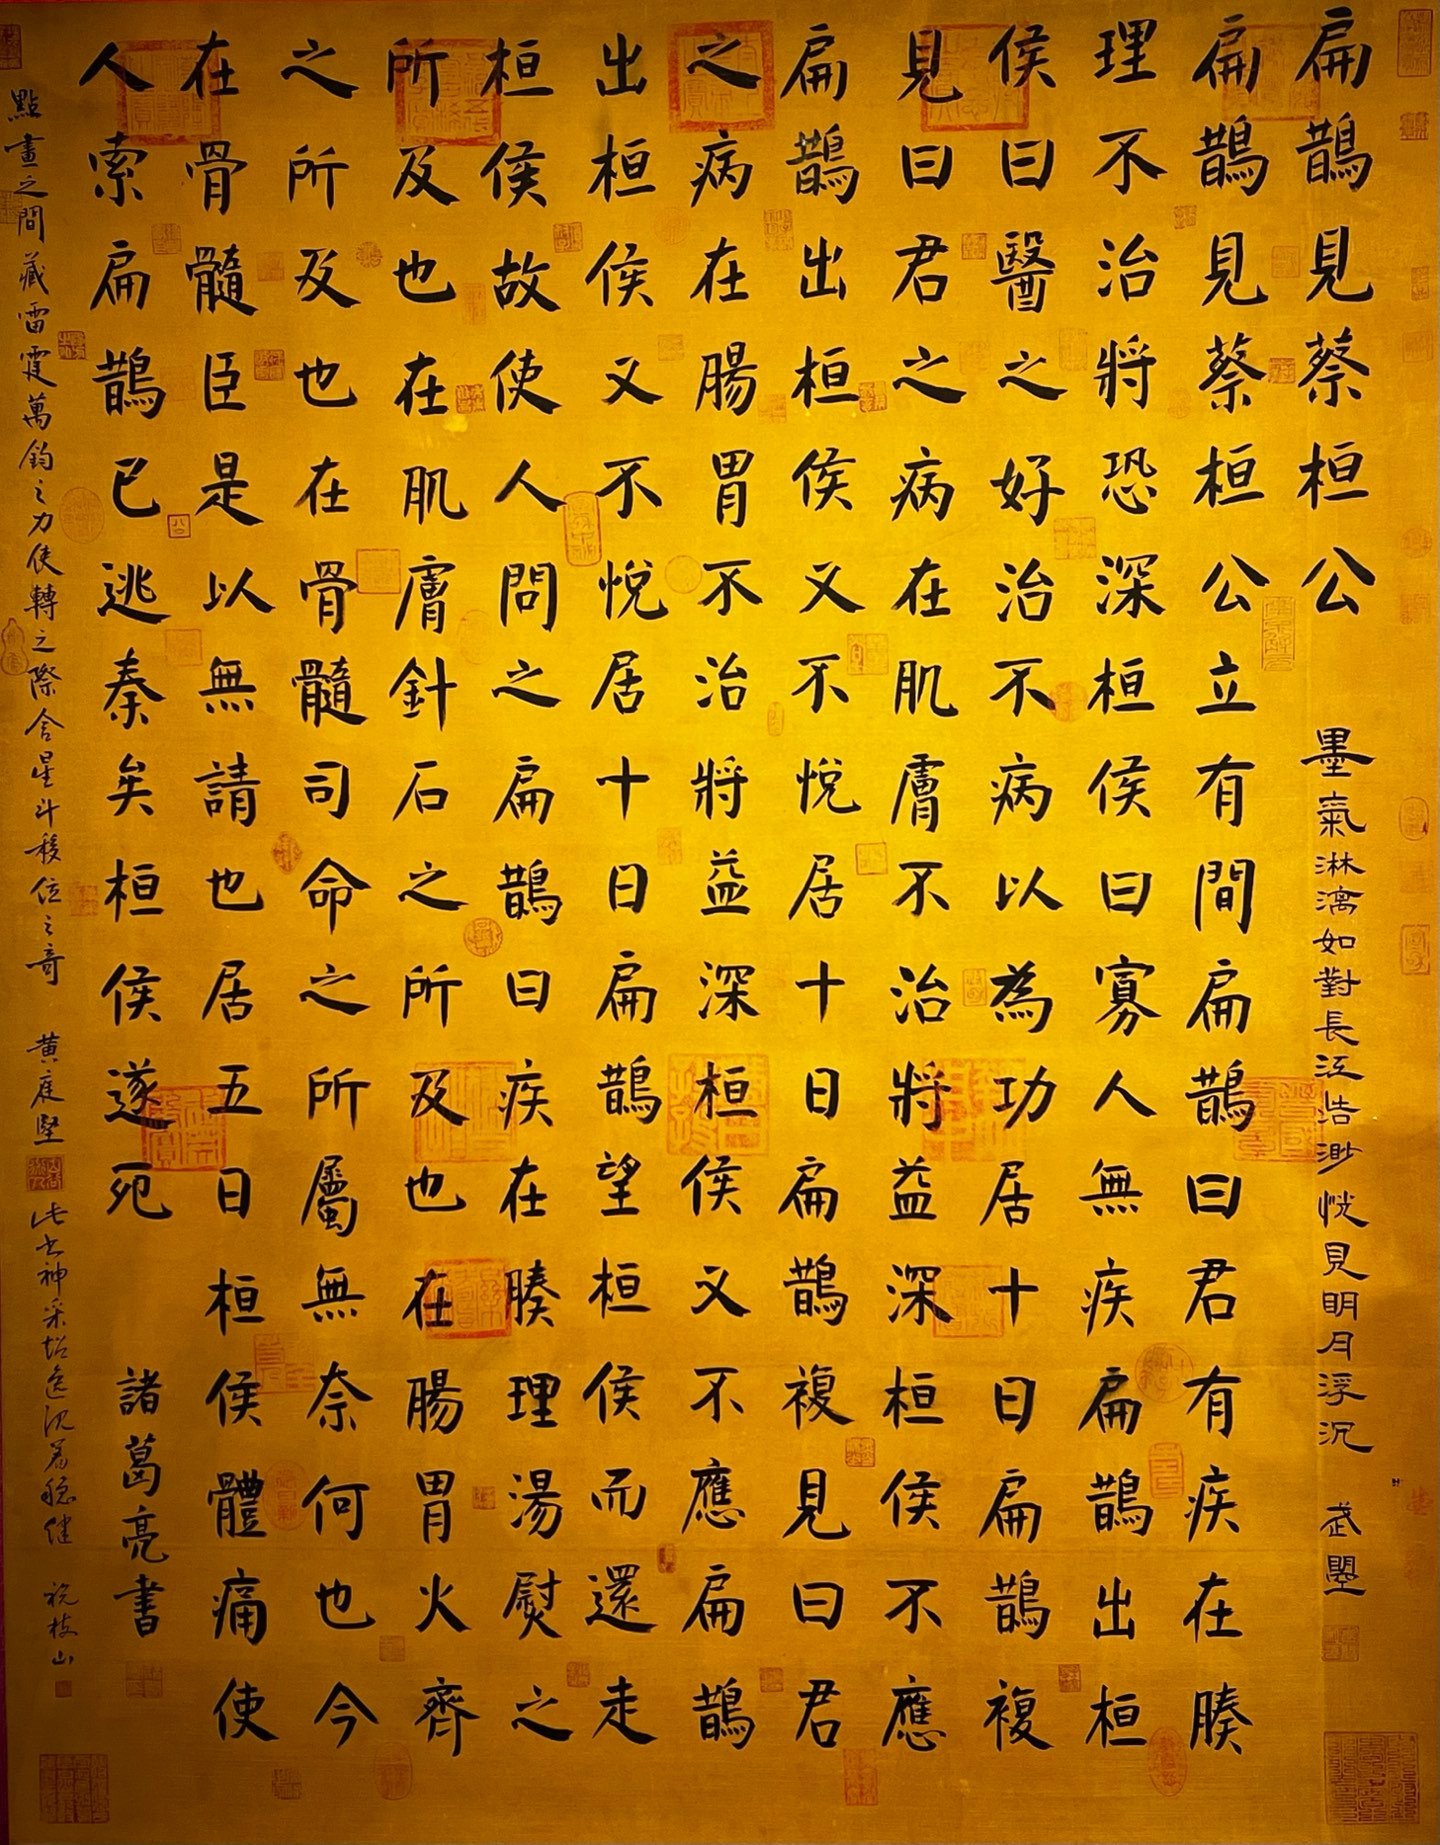 扁鵲見蔡桓公
墨氣淋漓如對長江浩渺恍見明月浮沉 武曌
扁鵲見蔡桓公立有間扁鵲曰君有疾在腠
理不治將恐深桓侯曰寡人無疾扁鵲出桓
侯曰醫之好治不病以為功居十日扁鵲複
見曰君之病在肌膚不治將益深桓侯不應
扁鵲出桓侯又不悅居十日扁鵲複見曰君
之病在腸胃不治將益深桓侯又不應扁鵲
出桓侯又不悅居十日扁鵲望桓侯而還走
桓侯故使人問之扁鵲曰疾在腠理湯熨之
所及也在肌膚針石之所及也在腸胃火齊
之所及也在骨髓司命之所屬無奈何也今
在骨髓臣是以無請也居五日桓侯體痛使
人索扁鵲已逃秦矣桓侯遂死
諸葛亮書
點畫之間藏雷霆萬鈞之力使轉之際含星斗移位之奇 黄庭堅
此書神采超逸沉着穩健 祝枝山